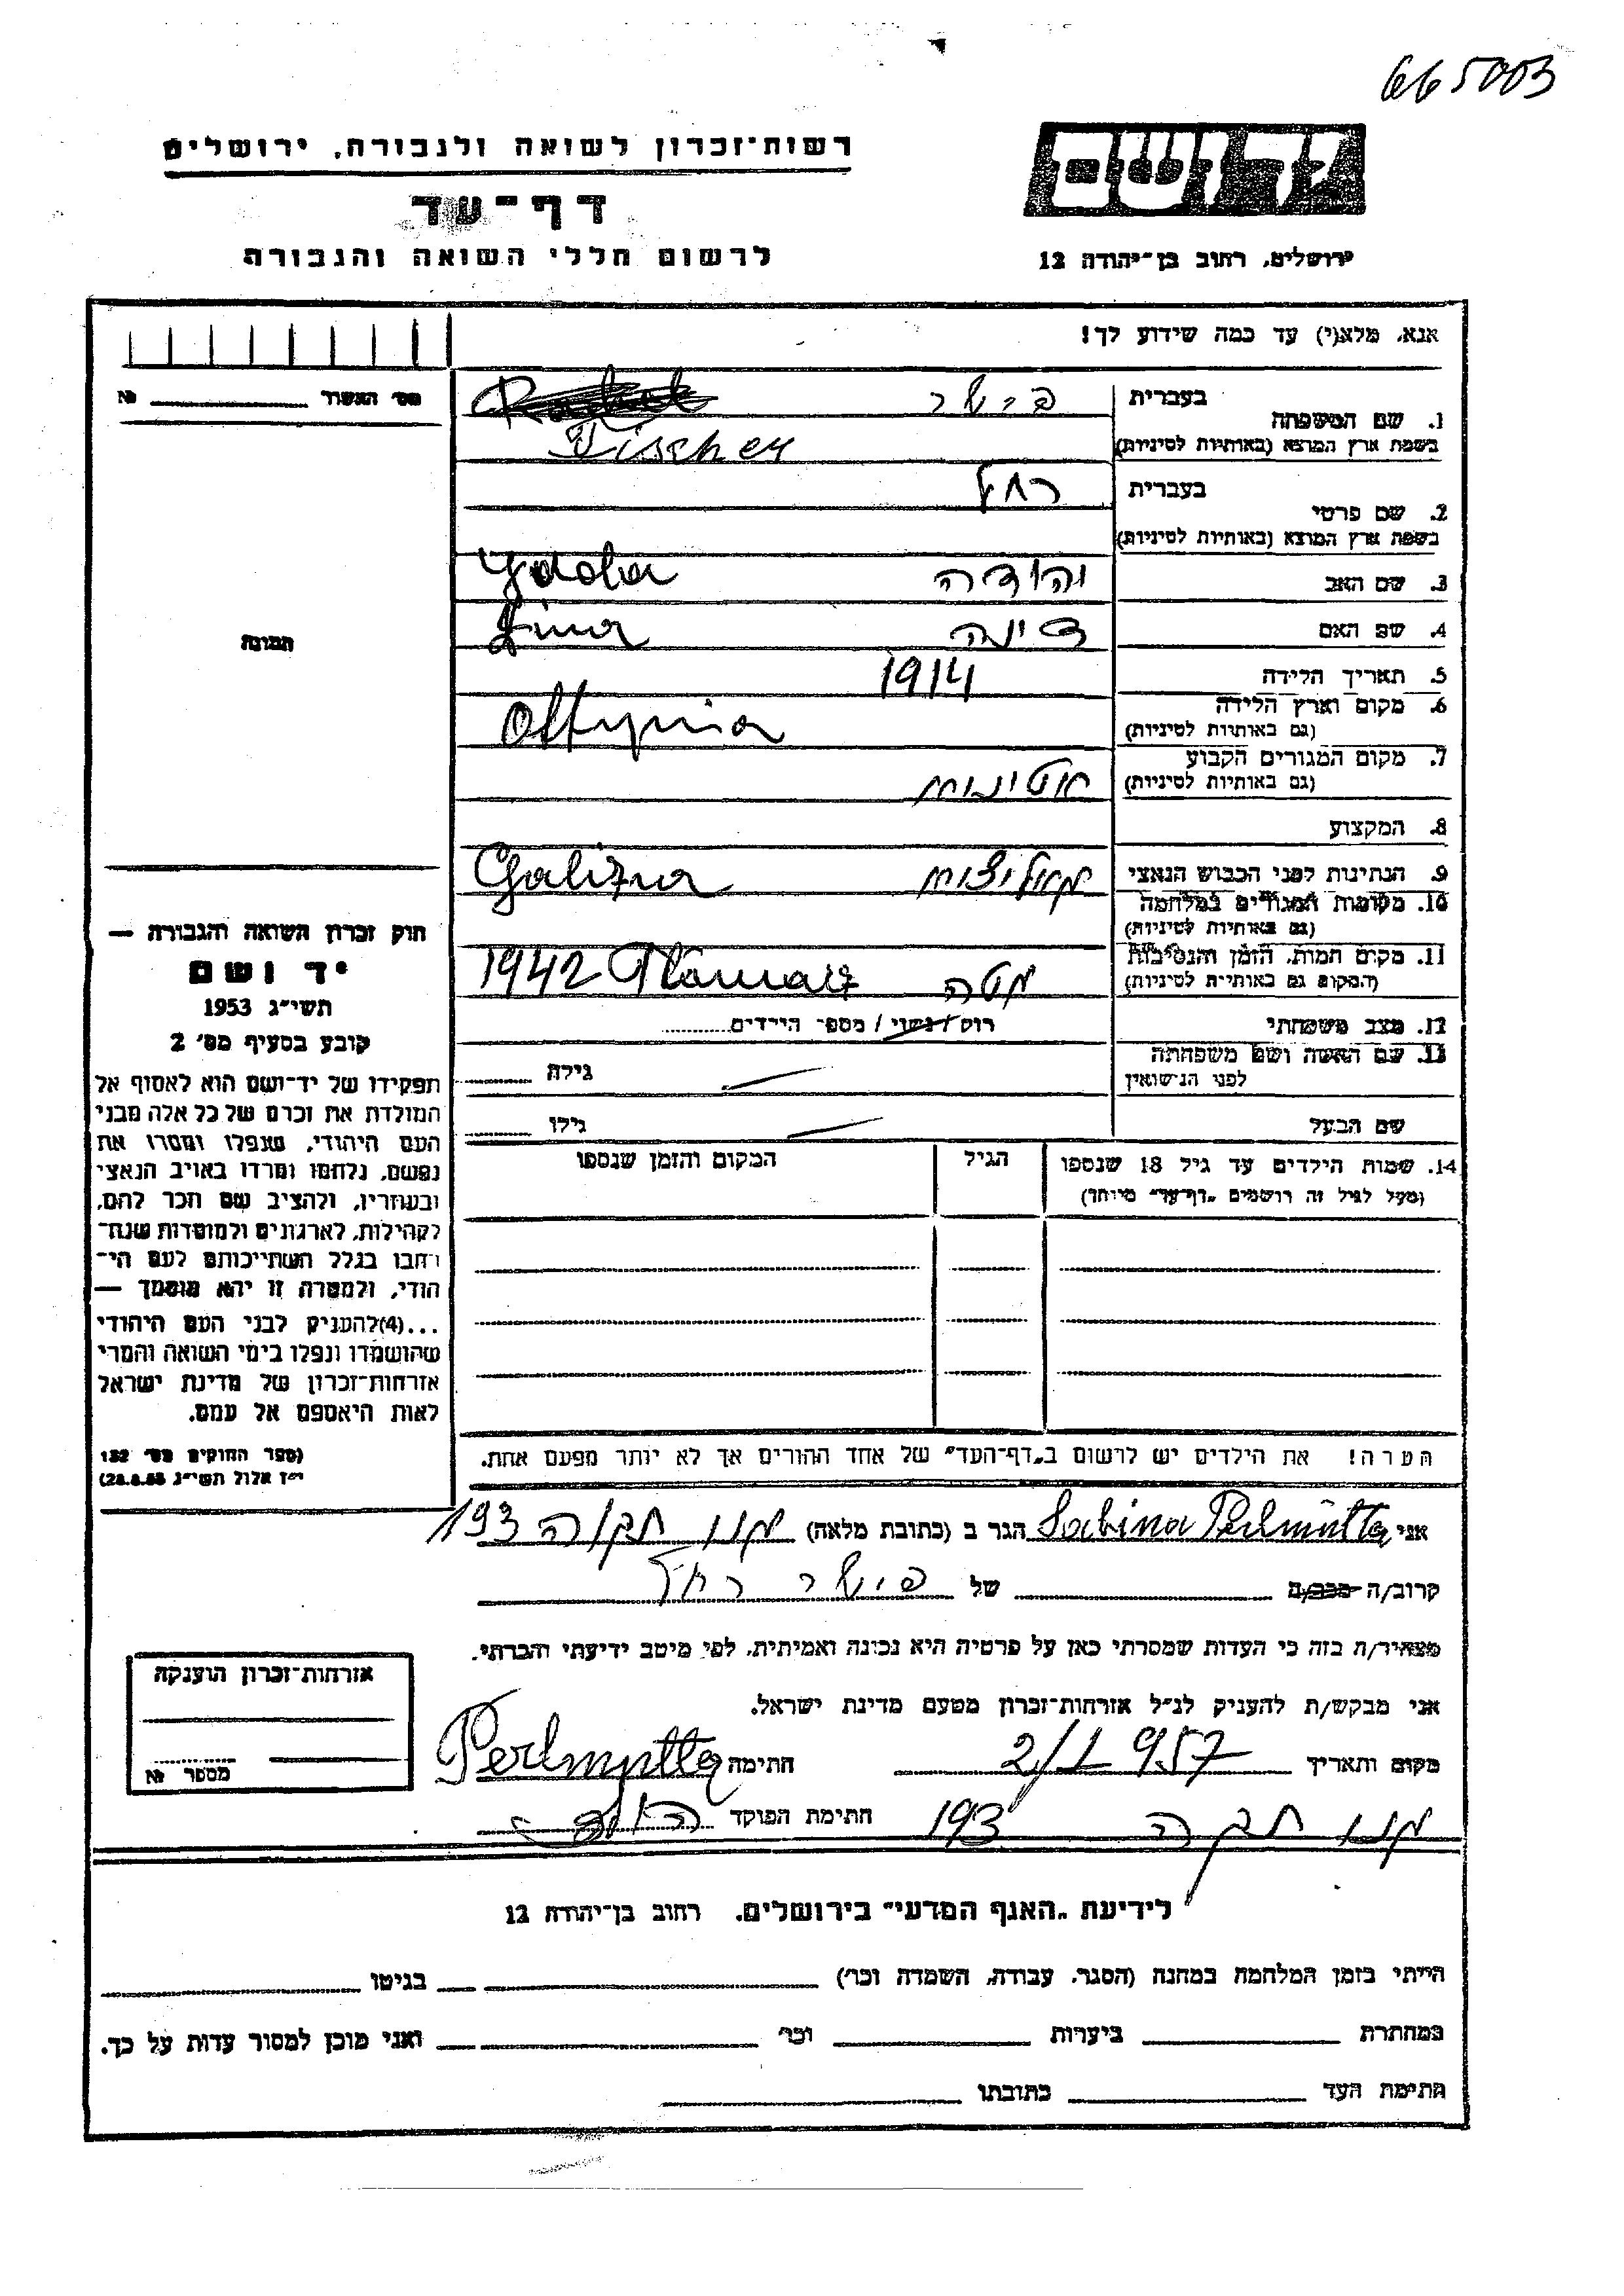 665003
רשות־זכרון לשואה ולגבורה, ירושלים
יד ושם
דף־עד
לרשום חללי השואה והגבורה
ירושלים, רחוב בן־יהודה 12
אנא, מלא(י) עד כמה שידוע לך!
מס׳ האשור № 
1. שם המשפחה
בעברית פישר
בשפת ארץ המוצא (באותיות לטיניות) Fischer
2. שם פרטי
בעברית רחל
בשפת ארץ המוצא (באותיות לטיניות)
3. שם האב יהודה
4. שם האם דינה Dina
5. תאריך הלידה 1914
6. מקום וארץ הלידה Ottynia
(גם באותיות לטיניות)
7. מקום המגורים הקבוע
(גם באותיות לטיניות)
8. המקצוע
9. הנתינות לפני הכבוש הנאצי Galizia
10. מקומות המגורים במלחמה
(גם באותיות לטיניות)
11. מקום המות, הזמן והנסיבות 1942
(המקום גם באותיות לטיניות)
12. מצב משפחתי רוק/נשוי/מספר הילדים
13. שם האשה ושם משפחתה
לפני הנישואין גילה
שם הבעל גילו
14. שמות הילדים עד גיל 18 שנספו הגיל המקום והזמן שנספו
(מעל לגיל זה רושמים „דף־עד” מיוחד)
הערה! את הילדים יש לרשום ב„דף־העד” של אחד ההורים אך לא יותר מפעם אחת.
תמונה
חוק זכרון השואה והגבורה —
יד ושם
תשי״ג 1953
קובע בסעיף מס׳ 2
תפקידו של יד־ושם הוא לאסוף אל
המולדת את זכרם של כל אלה מבני
העם היהודי, שנפלו ומסרו את
נפשם, נלחמו ומרדו באויב הנאצי
ובעוזריו, ולהציב שם וזכר להם,
לקהילות, לארגונים ולמוסדות שנח־
רבו בגלל השתייכותם לעם הי־
הודי, ולמטרה זו יהא מוסמך —
...(4)להעניק לבני העם היהודי
שהושמדו ונפלו בימי השואה והמרי
אזרחות־זכרון של מדינת ישראל
לאות היאספם אל עמם.
(ספר החוקים מס׳ 132
י״ז אלול תשי״ג 28.8.53)
אני Sabina Perlmutter הגר ב (כתובת מלאה) 193
קרוב/ה מכר/ה של פישר רחל
מצהיר/ה בזה כי העדות שמסרתי כאן על פרטיה היא נכונה ואמיתית, לפי מיטב ידיעתי והכרתי.
אני מבקש/ת להעניק לנ״ל אזרחות־זכרון מטעם מדינת ישראל.
מקום ותאריך 2/1 957 חתימה Perlmutter
193 חתימת הפוקד
אזרחות־זכרון הוענקה
מספר №
לידיעת „האגף המדעי” בירושלים, רחוב בן־יהודה 12
הייתי בזמן המלחמה במחנה (הסגר, עבודה, השמדה וכו׳) בגיטו
במחתרת ביערות וכו׳ ואני מוכן למסור עדות על כך.
חתימת העד כתובתו